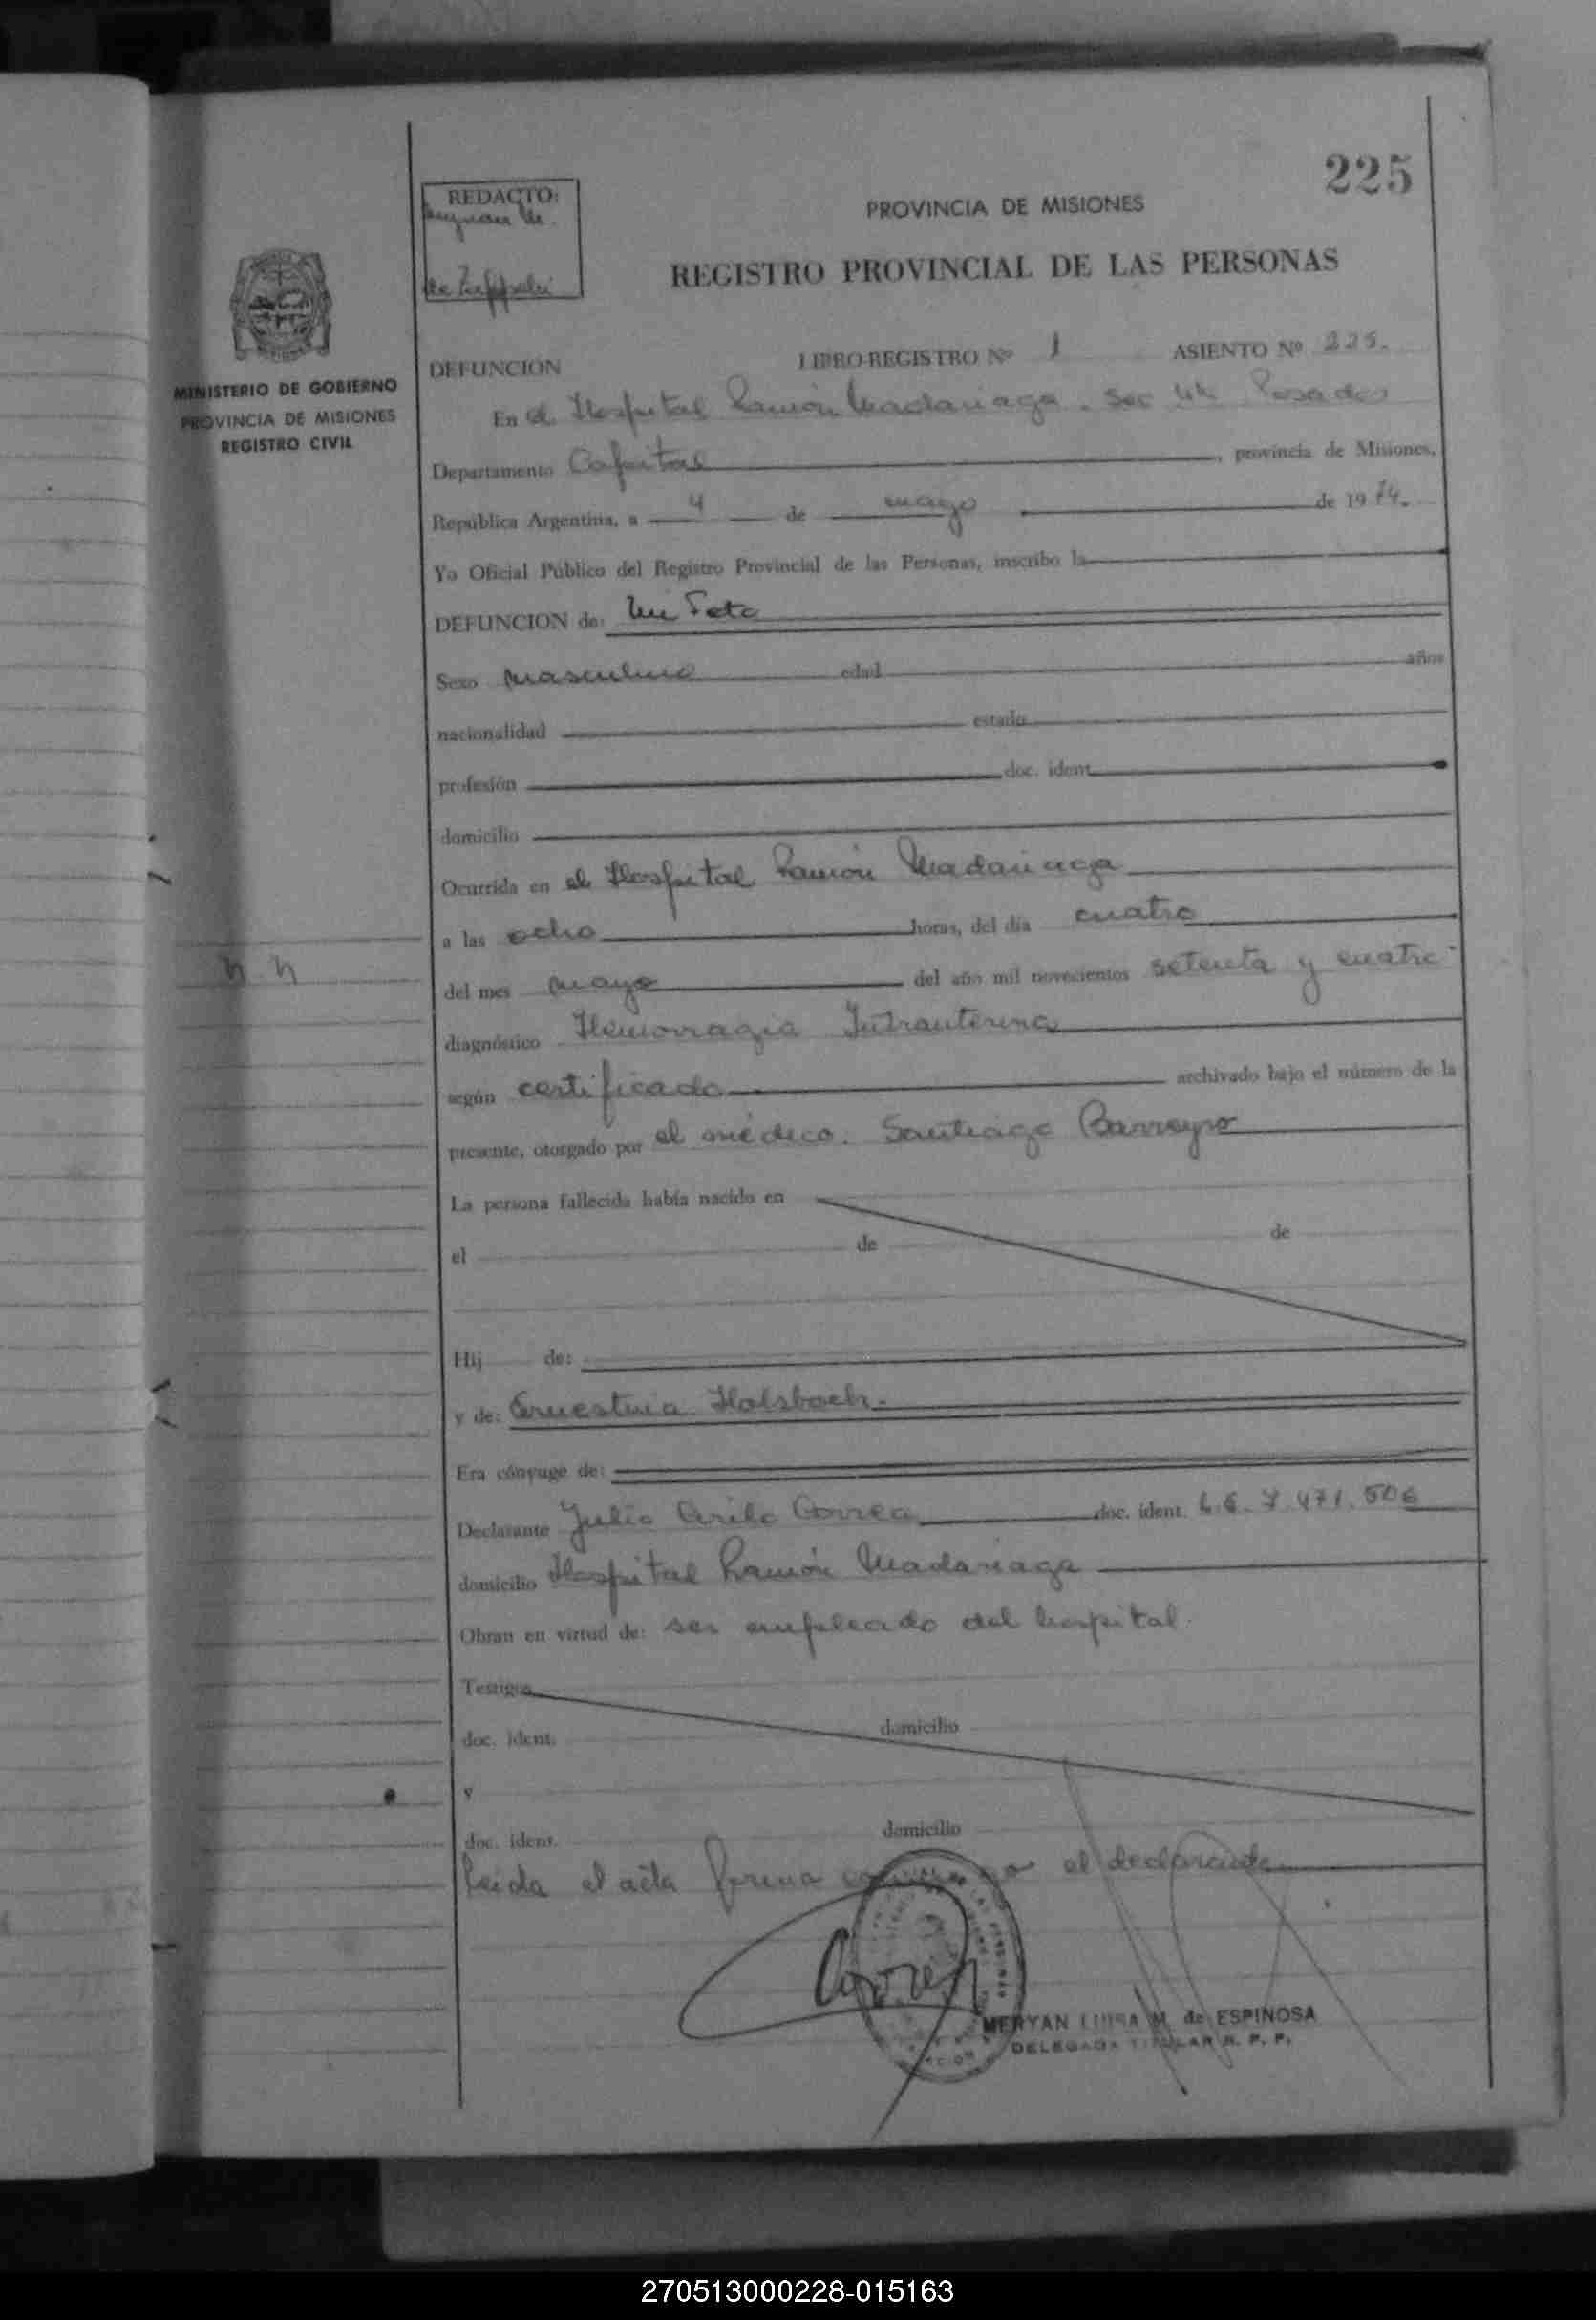 225
REDACTO:
de Zeppelin
PROVINCIA DE MISIONES
REGISTRO PROVINCIAL DE LAS PERSONAS
MINISTERIO DE GOBIERNO
PROVINCIA DE MISIONES
REGISTRO CIVIL
DEFUNCION LIBRO-REGISTRO Nº 1 ASIENTO Nº 225.
En el Hospital Ramón Madariaga. Sec 4ta Posadas
Departamento Capital, provincia de Misiones,
República Argentina, a 4 de mayo de 1974.
Yo Oficial Público del Registro Provincial de las Personas, inscribo la
DEFUNCION de: Un Feto
Sexo masculino edad años
nacionalidad estado
profesión doc. ident.
domicilio
Ocurrida en el Hospital Ramón Madariaga
a las ocho horas, del día cuatro
del mes mayo del año mil novecientos setenta y cuatro
n n
diagnóstico Hemorragia Intrauterina
según certificado archivado bajo el número de la
presente, otorgado por el médico. Santiago Barreyro
La persona fallecida había nacido en
el de de
Hij de:
y de: Ernestina Holsbach.
Era cónyuge de:
Declarante Julio Cirilo Correa doc. ident. L.E. 7.471.506
domicilio Hospital Ramón Madariaga
Obran en virtud de: ser empleado del hospital.
Testigos
doc. ident. domicilio
y
doc. ident. domicilio
Leida el acta firma conmigo el declarante
Correa
MERYAN LUISA M. de ESPINOSA
DELEGADA TITULAR R. P. P.
270513000228-015163